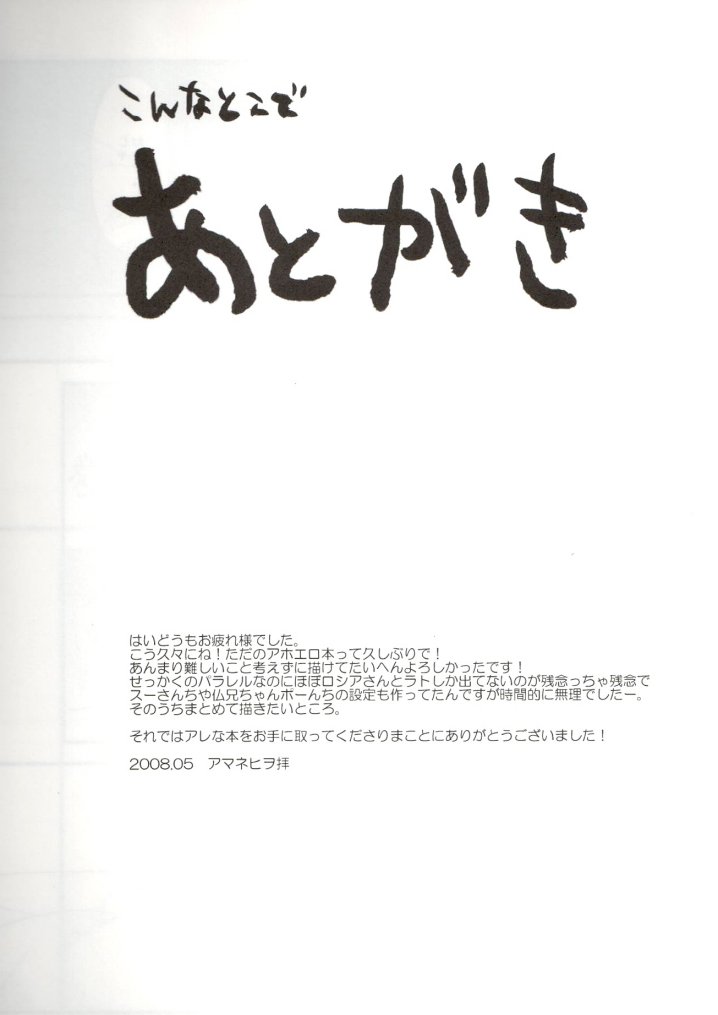 こんなとこで
あとがき
はいどうもお疲れ様でした。
こう久々にね！ただのアホエロ本って久しぶりで！
あんまり難しいこと考えずに描けてたいへんよろしかったです！
せっかくのパラレルなのにほぼロシアさんとラトしか出てないのが残念っちゃ残念で
スーさんちや仏兄ちゃんポーんちの設定も作ってたんですが時間的に無理でしたー。
そのうちまとめて描きたいところ。
それではアレな本をお手に取ってくださりまことにありがとうございました！
2008.05　アマネヒヲ拝